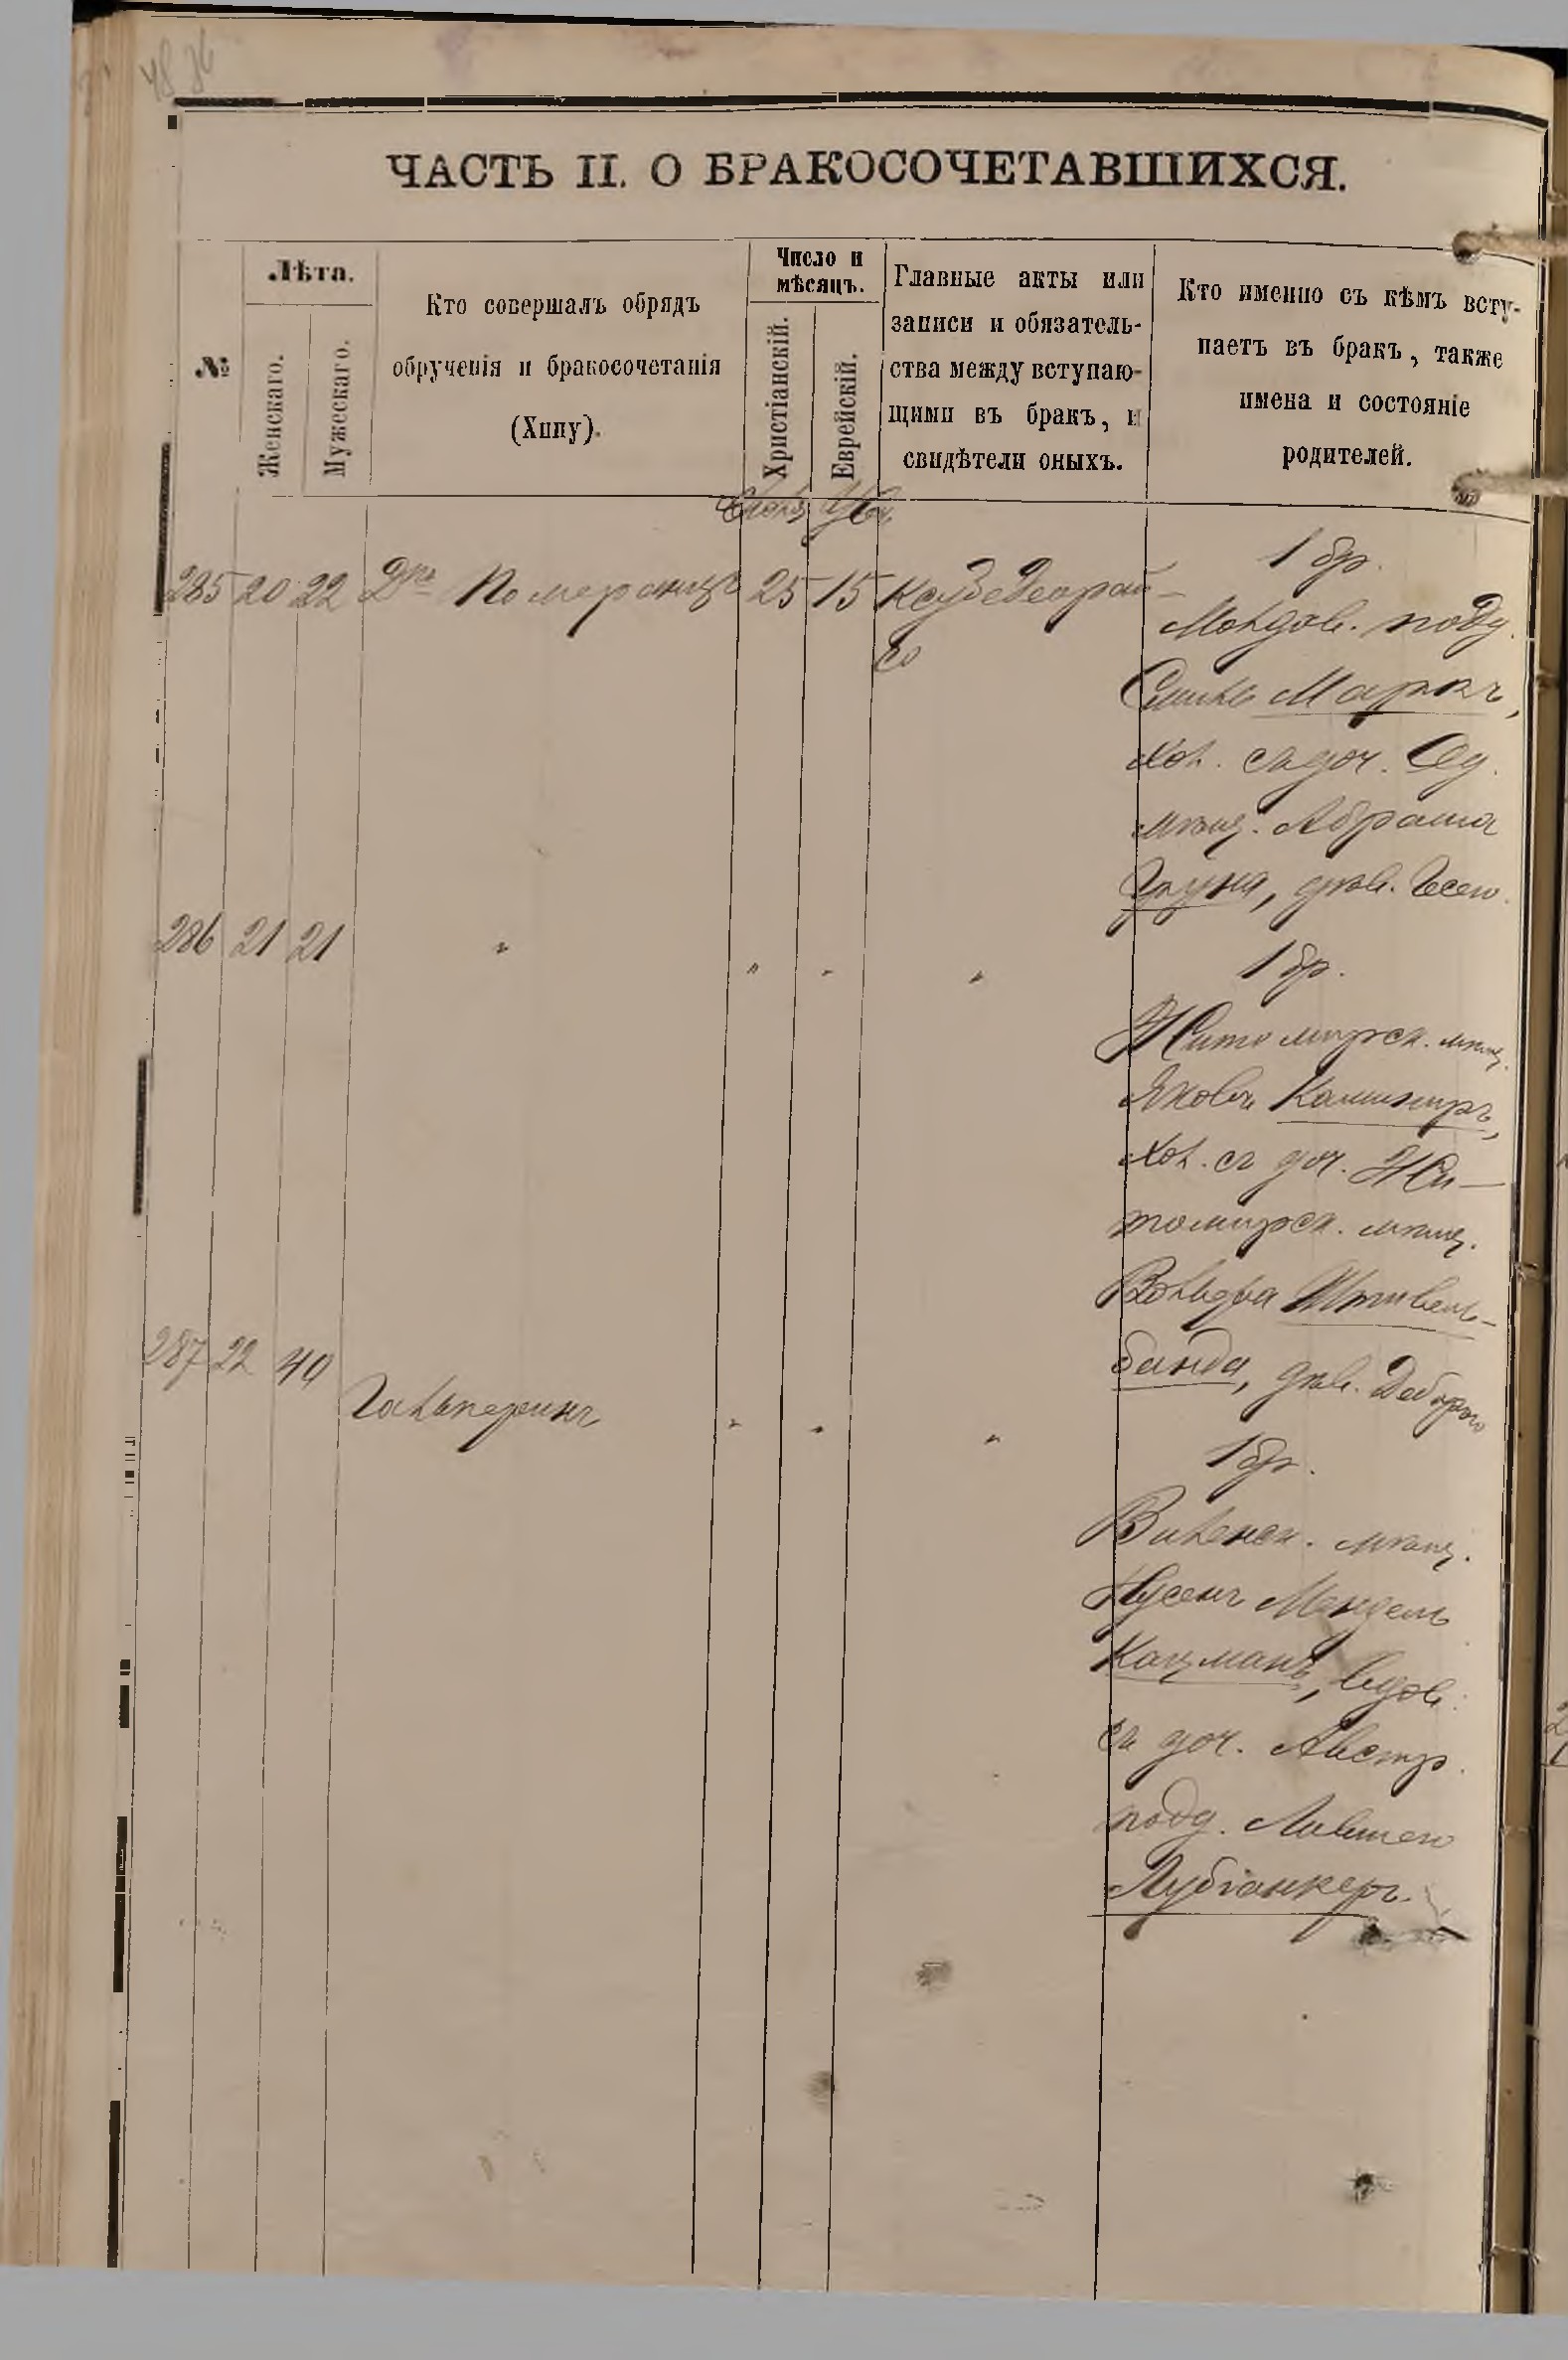 ЧАСТЬ II. О БРАКОСОЧЕТАВШИХСЯ.
№
Лѣта.
Женскаго.
Мужескаго.
Кто совершалъ обрядъ
обрученія и бракосочетанія
(Хипу).
Число и
мѣсяцъ.
Христіанскій.
Еврейскій.
Главные акты или
записи и обязатель-
ства между вступаю-
щими въ бракъ, и
свидѣтели оныхъ.
Кто именно съ кѣмъ всту-
паетъ въ бракъ, также
имена и состояніе
родителей.
285 20 22 Дръ Померанцъ 25 15
1 бр.
Молдав. подд.
Маркъ,
хол. съ доч. Од.
мѣщ. Абрама
286 21 21 " " " "
1 бр.
Житомирск. мѣщ.
Яковъ Каминиръ,
хол. съ доч. Жи-
томирск. мѣщ.
Вольфа Штивель-
банда, дѣв. Деборою
287 22 40 Гальперинъ " " "
1 бр.
Виленск. мѣщ.
Нусенъ Мендель
Кацманъ, вдов.
съ доч. Австр.
подд.